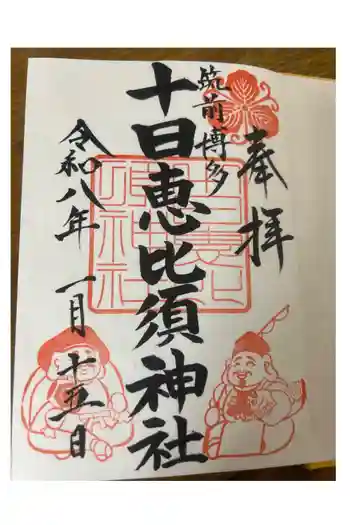 奉拝
筑前博多
十日恵比須神社
令和八年一月十五日